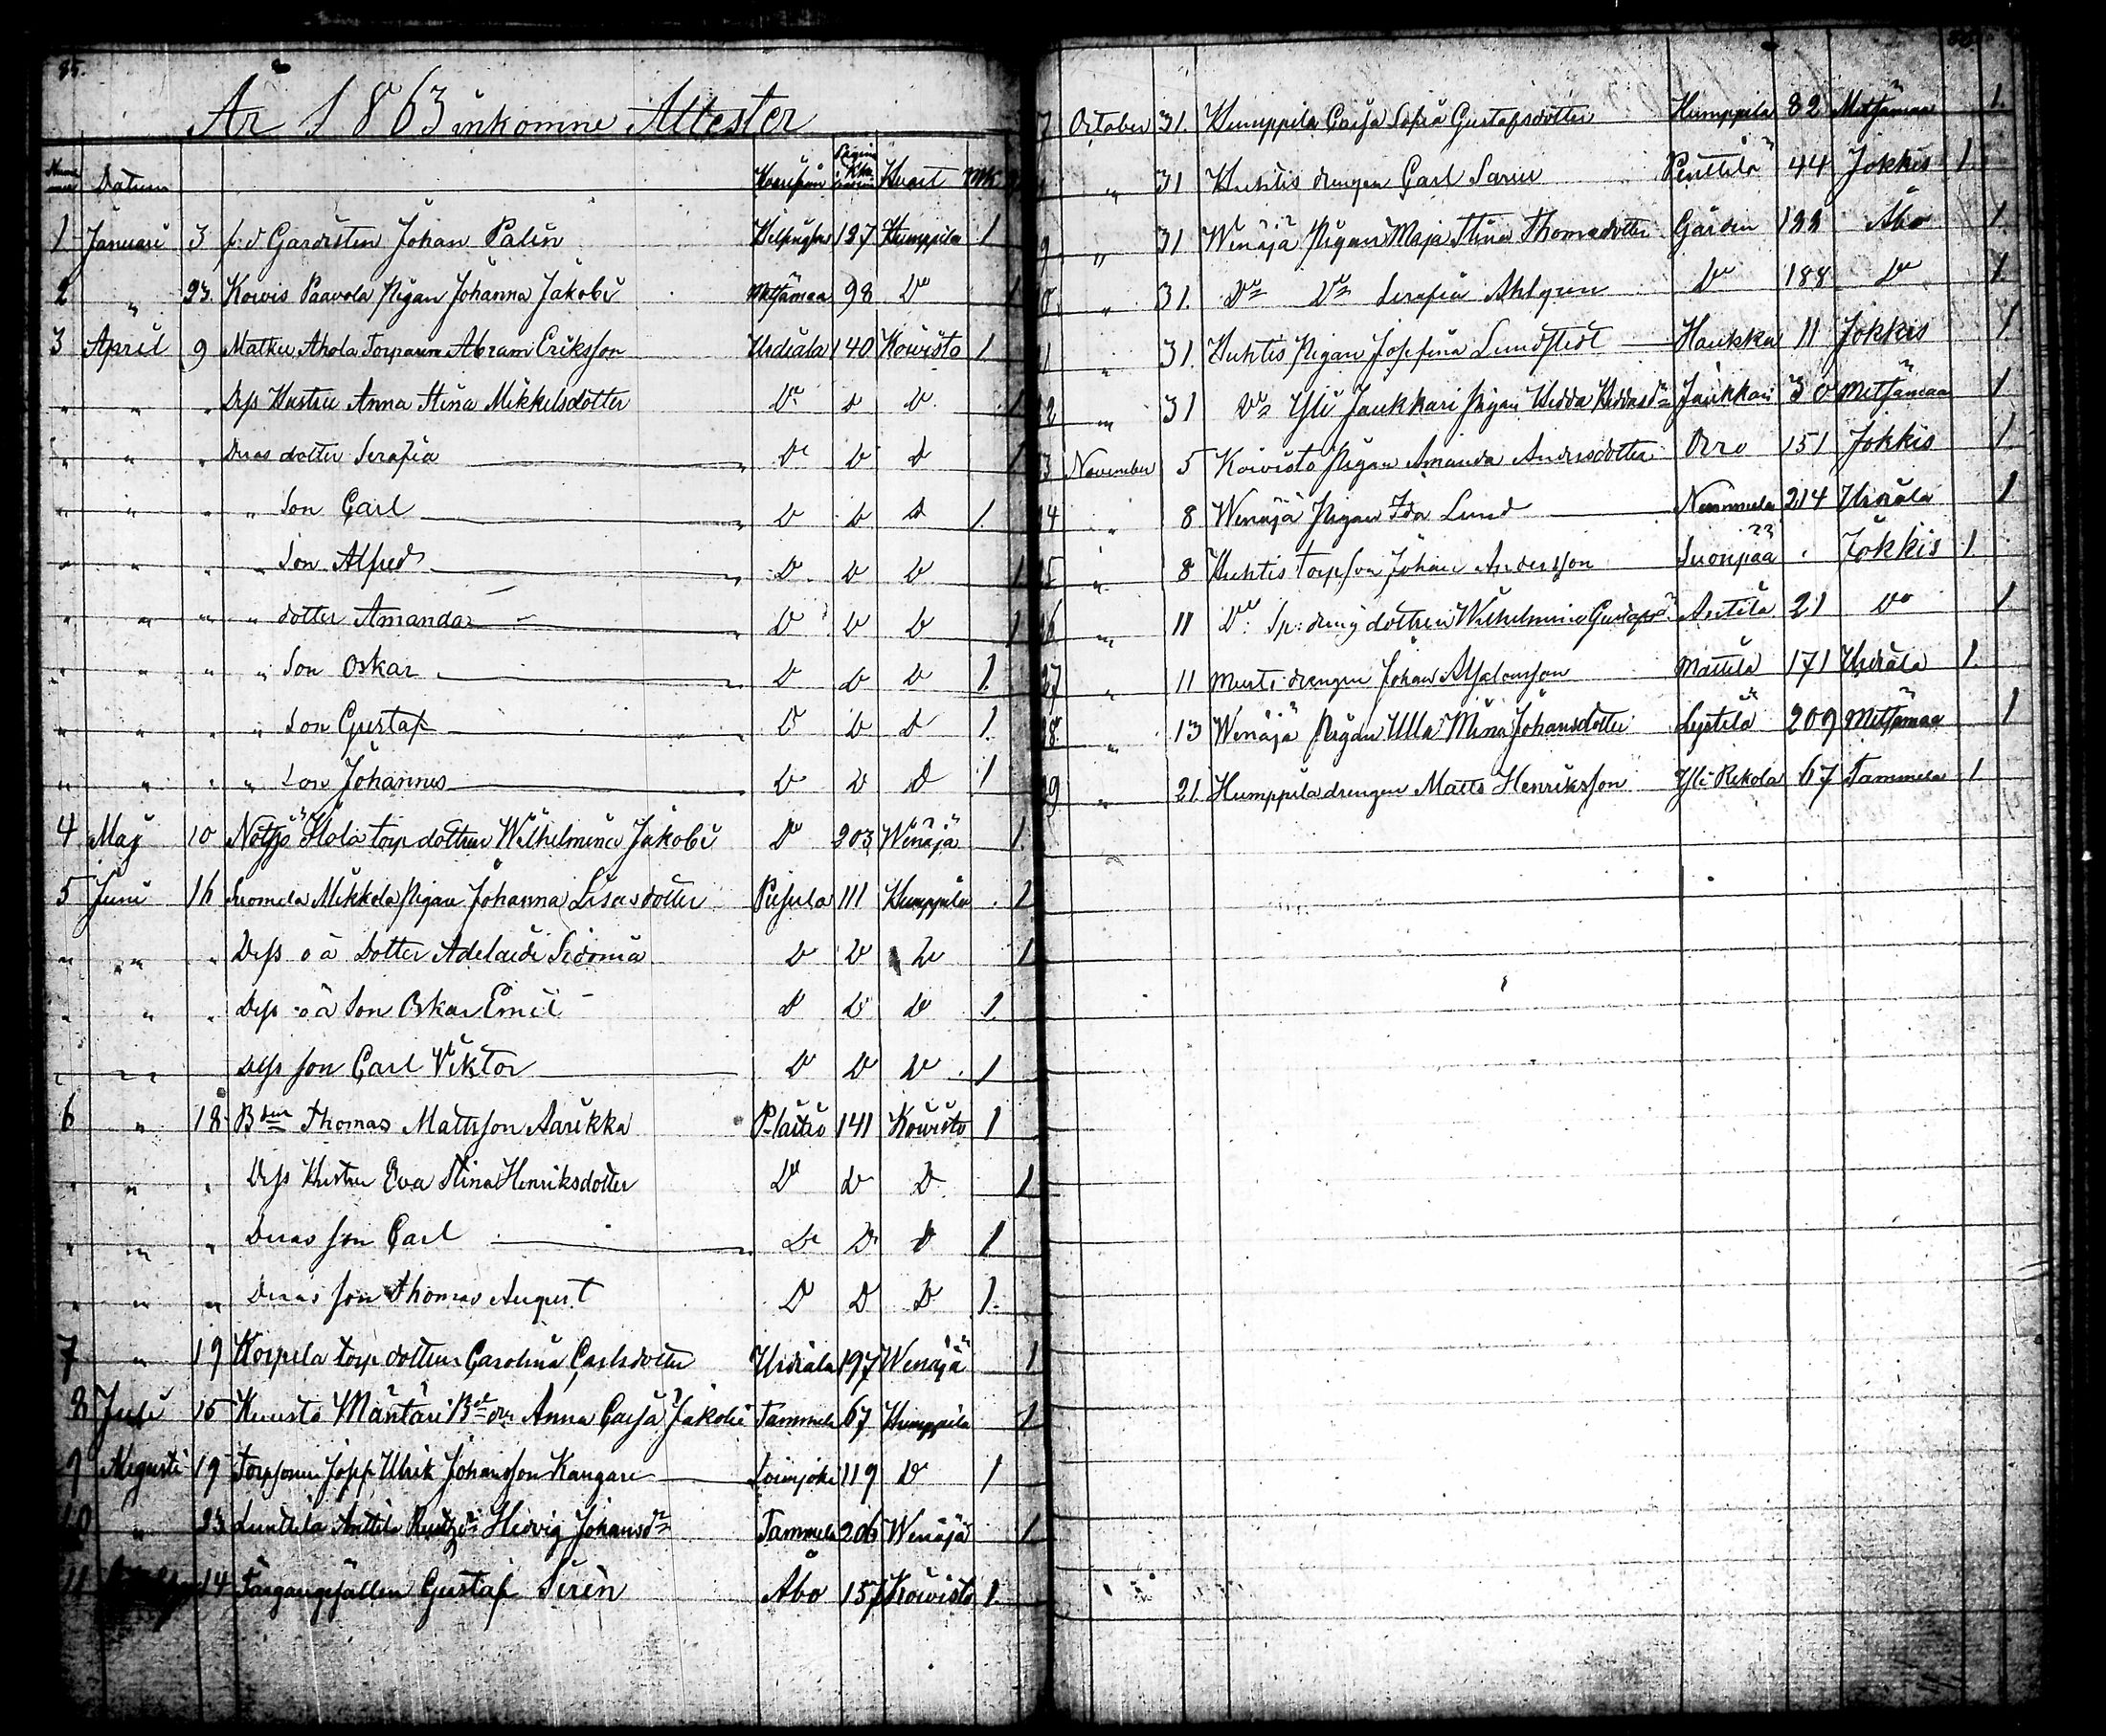 85.
År 1863 inkomne Attester
Datum Hvarifrån Pagina Hvart Mk Q
1 Januari 3 f: d Gardisten Johan Palin Helsingfors 127 Humppila 1
2 " 23. Koivis Paavola Pigan Johanna Jakobi Mettämaa 98 Do 1
3 April 9 Matku Ahola Torparen Abram Eriksson Urdiala 140 Koivisto 1
" " " Dess Hustru Anna Stina Mikkelsdotter Do D D 1
" " " Deras dotter Serafia Do D D 1
" " " " Son Carl D D D 1
" " " " Son Alfred D D D 1
" " " " dotter Amanda D D D 1
" " " " Son Oskar D D D 1.
" " " " Son Gustaf D D D 1.
" " " " Son Johannes D D D 1
4 Maj 10 Hola torp dottren Wilhelmina Jakobi Do 203 Wenäjä 1.
5 Juni 16 Suomela Mikkola Pigan Johanna Lisasdotter Pusula 111 Humppila 1
" " " Dess o ä Dotter Adelaide Sidonia D D D 1
" " " Dess o ä Son Oskar Emil D D D 1.
" " " Dess son Carl Viktor D D D 1
6 " 18 Bden Thomas Mattsson Aarikka P. laitio 141 Koivisto 1
" " " Dess Hustru Eva Stina Henriksdotter Do D D 1
" " " Deras son Carl D D D 1
" " " Deras son Thomas August D D D 1.
7 " 19 Korpela torp dottren Carolina Carlsdotter Urdiala 197 Wenäjä 1
8 Juli 15 Mäntäri Anna Cajsa Jakobi Tammela 67 Humppila 1
9 Augusti 19 Torpsonen Josef Ulrik Johansson Kangare Loimjoki 119 D 1
10 " 23 Anttila Hedvig Johansdr Tammela 206 Wenäjä 1
11 14 Gustaf Sirèn Åbo 157 Koivisto 1.
7 October 31. Humppila Cajsa Sofia Gustafsdotter Humppila 82 Mettämaa 1.
" 31 Huhtis drengen Carl Penttilä 44 Jokkis 1.
9 " 31 Wenäjä Pigan Maja Stina Thomasdotter Gården 122 Åbo 1.
0 " 31. Do Do Serafia Ahlgren Do 188 Do 1.
1 " 31. Huhtis Pigan Josefina Lundstedt Haukka 11 Jokkis 1.
2 " 31 Do Yli Jaukkari Pigan Hedda Jaukkari 30 Mettämaa 1
3 November 5 Koivisto Pigan Amanda Andersdotter Orro 151 Jokkis 1
4 " 8 Wenäjä Pigan Ida Lund Nummela 214 Urdiala 1
5 " 8 Huhtis torpson Johan Andersson Suonpää " Jokkis 1.
26 " 11 Do: dottren Wilhelmina Anttila 21 Do 1
27 " 11 Murto drengen Johan Absalonsson Mattila 171 Urdiala 1.
28 " 13 Wenäjä Pigan Ulla Mina Johansdotter 209 Mettämaa 1
29 " 21. Humppila drengen Matts Henriksson Yli Rekola 67 Tammela 1.